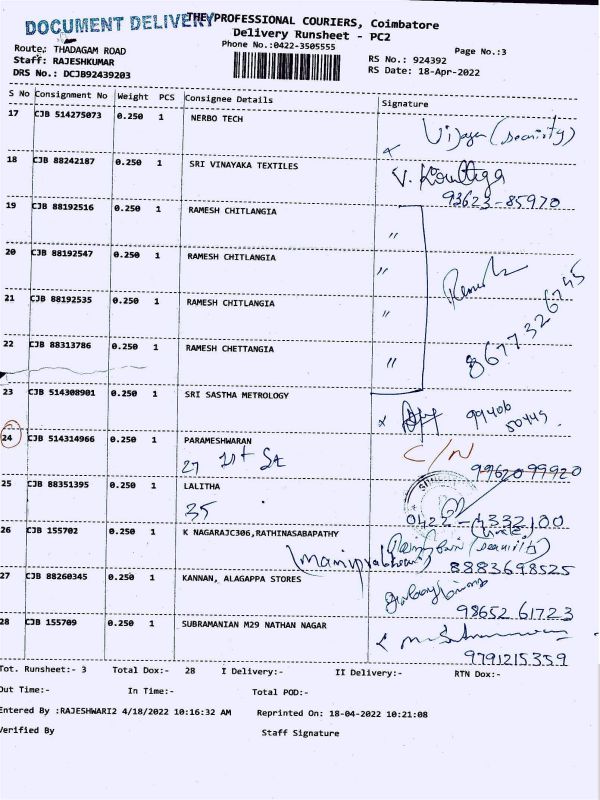 DOCUMENT DELIVERY
THE PROFESSIONAL COURIERS, Coimbatore
Delivery Runsheet - PC2
Phone No.:0422-3505555
Page No.:3
Route: THADAGAM ROAD
Staff: RAJESHKUMAR
DRS No.: DCJB92439203
RS No.: 924392
RS Date: 18-Apr-2022
S No Consignment No Weight PCS Consignee Details Signature
17 CJB 514275073 0.250 1 NERBO TECH
(security)
18 CJB 88242187 0.250 1 SRI VINAYAKA TEXTILES
93623-85970
19 CJB 88192516 0.250 1 RAMESH CHITLANGIA
"
20 CJB 88192547 0.250 1 RAMESH CHITLANGIA
"
21 CJB 88192535 0.250 1 RAMESH CHITLANGIA
"
8677326745
22 CJB 88313786 0.250 1 RAMESH CHETTANGIA
"
23 CJB 514308901 0.250 1 SRI SASTHA METROLOGY
99406
50449.
24 CJB 514314966 0.250 1 PARAMESHWARAN
C/N
27 1st St
9962099920
25 CJB 88351395 0.250 1 LALITHA
35
0422-4332100
26 CJB 155702 0.250 1 K NAGARAJC306,RATHINASABAPATHY
(security)
8883698525
27 CJB 88260345 0.250 1 KANNAN, ALAGAPPA STORES
98652 61723
28 CJB 155709 0.250 1 SUBRAMANIAN M29 NATHAN NAGAR
9791215359
Tot. Runsheet:- 3 Total Dox:- 28 I Delivery:- II Delivery:- RTN Dox:-
Out Time:- In Time:- Total POD:-
Entered By :RAJESHWARI2 4/18/2022 10:16:32 AM Reprinted On: 18-04-2022 10:21:08
Verified By Staff Signature